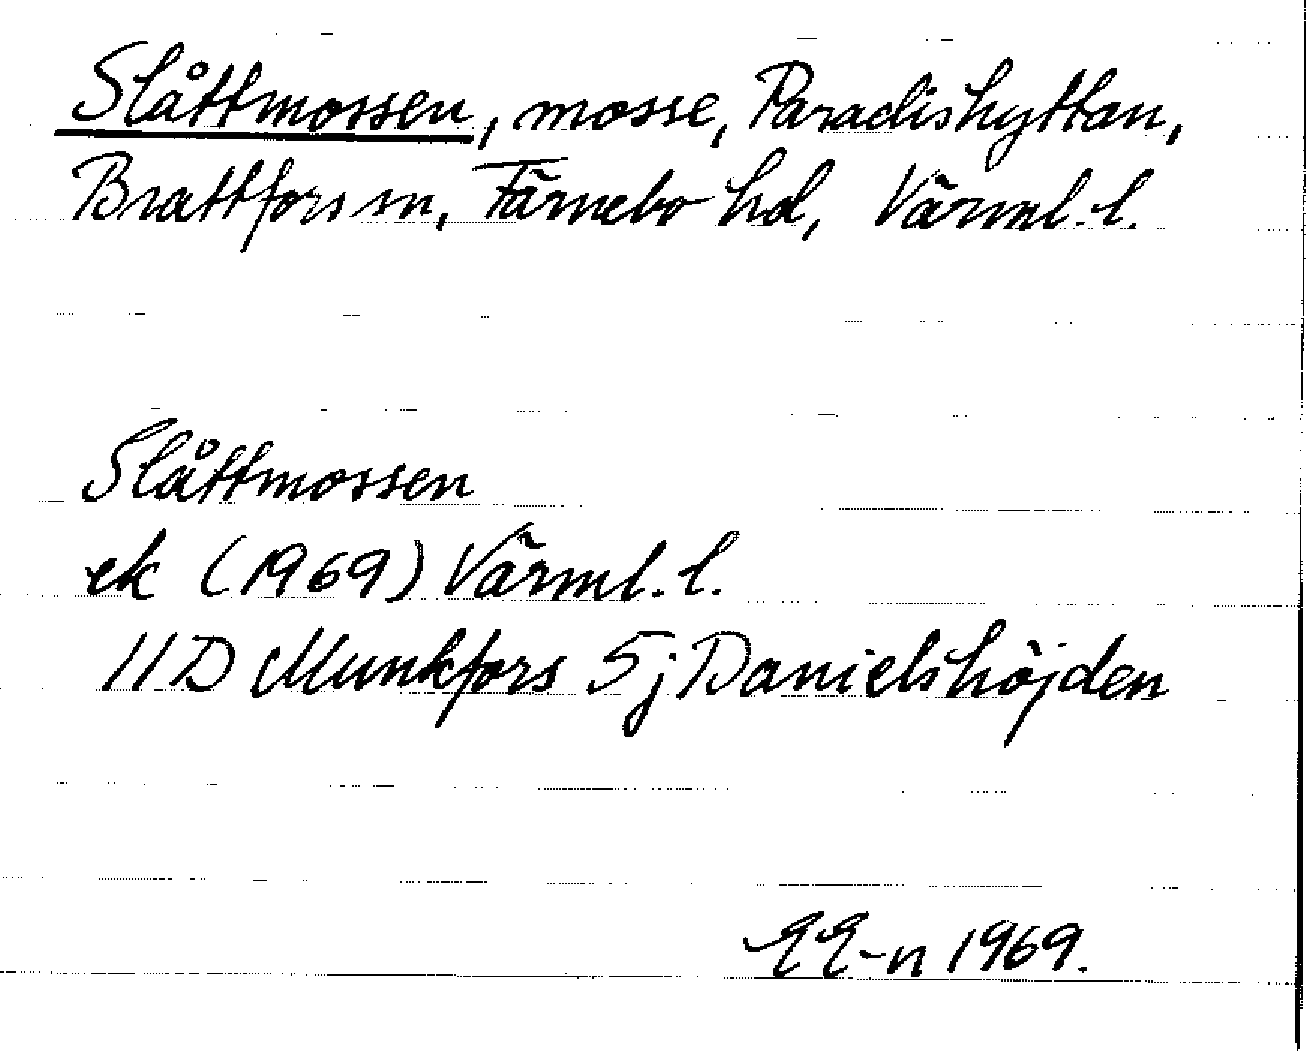 Slåttmossen, mosse, Paradishyttan,
Brattfors sn, Färnebo hd, Värml. l.
Slåttmossen
ek (1969) Värml. l.
11D Munkfors 5j Danielshöjden
EE-n 1969.